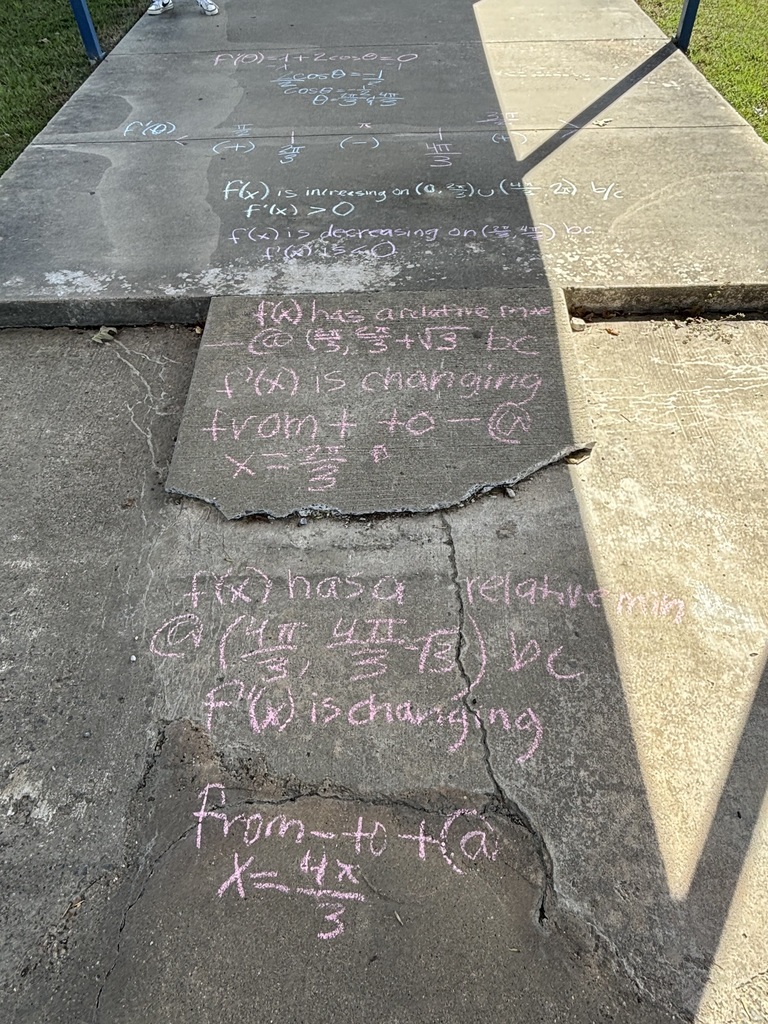 f'(θ)=1+2cosθ=0
2cosθ=-1
cosθ=-1/2
θ=2π/3, 4π/3
f'(θ) π/2 π 3π/2
(+) 2π/3 (-) 4π/3 (+)
f(x) is increasing on (0, 2π/3) ∪ (4π/3, 2π) b/c
f'(x) > 0
f(x) is decreasing on (2π/3, 4π/3) bc
f'(x) is < 0
f(x) has a relative max
@ (2π/3, 2π/3 + √3 bc
f'(x) is changing
from + to - @
x = 2π/3
f(x) has a relative min
@ (4π/3, 4π/3 - √3) bc
f'(x) is changing
from - to + @
x = 4π/3